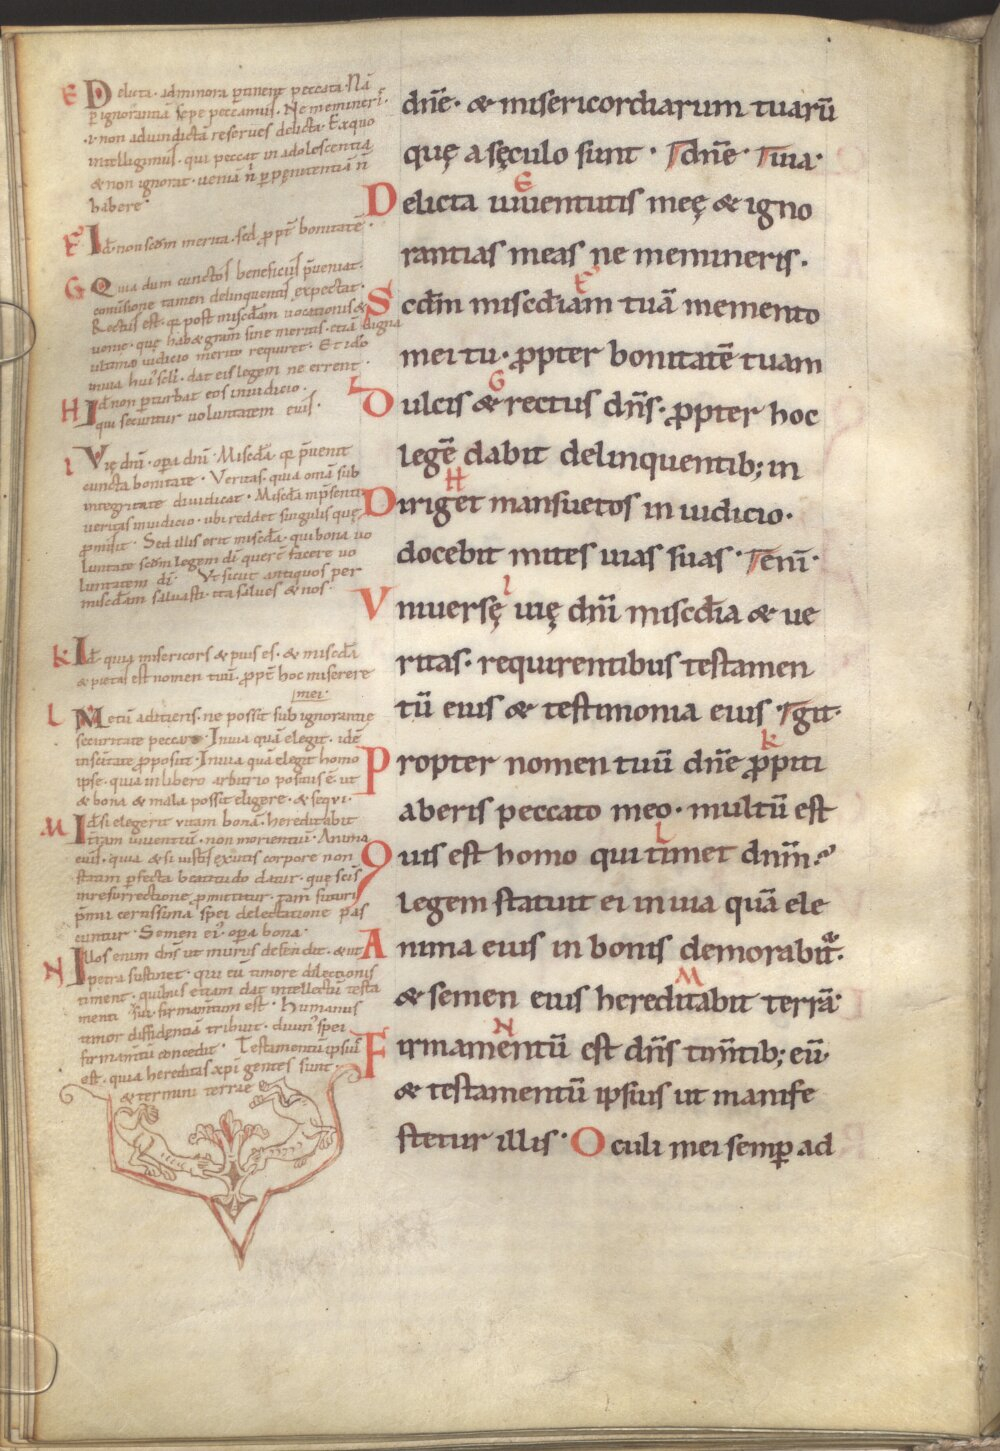 E Delicta · ad minora ptinent peccata · Nā
p ignorantiā sepe peccamus · Ne memineri
·i· non ad uindictā reserues delicta · Ex quo
intelligimus · qui peccat in adolescentia
& non ignorat · ueniā ñ p pęnitentiā ñ
habere ·
F Id · non scdm merita · sed ppt bonitatē ·
G Quia dum cunctos beneficiis pueniat ·
conuersione tamen delinquentis expectat ·
Rectus est · qa post miscdiam uocationis &
ultimo iudicio merito requiret · Et ido
in uia hui' scli · dat eis legem ne errent ·
H Id non pturbat eos in iudicio ·
qui secuntur uoluntatem eius ·
I Vię dni · opa dni · Miscdia · qa puenit
cuncta bonitate · Veritas · quia omia sub
integritate diuidicat · Miscdia in psenti
ueritas in iudicio · ubi reddet singulis quę
pmisit · Sed illis erit miscdia · qui bona uo
luntate scdm legem di querē facere uo
luntatem di · Vt sicut antiquos per
miscdiam saluasti · ita salues & nos ·
K Id quia misericors & pius es · & miscdia
& pietas est nomen tuū · ppt hoc miserere
mei ·
L Metū adiiciens · ne possit sub ignorantię
securitate peccare · In uia quā elegit · idē
in scitate pposuit · In uia quā elegit homo
ipse · quia in libero arbitrio positus ē · ut
& bona & mala possit eligere · & sequi ·
M Id si elegerit uitam bonā · hereditabit
trram uiuentium · non morientium · Anima
eius · quia & si iustis exutis corpore non
statim pfecta beatitudo datur · que scis
in resurrectione pmittitur · tam futuri
pmii certissima spei delectatione pas
cuntur · Semen ei' · opa bona ·
N Illos enim dns ut murus defendit · & ut
petra sustinet · qui eū timore dilectionis
timent · quibus etiam dat intellectū testa
menti sui · firmamtum est · Humanus
timor diffidentiā tribuit · diuin' spei
firmamtū concedit · Testamentū ipsius
est · quia hereditas xpi gentes sunt ·
& termini terrae
dnē · & misericordiarum tuarū
quę a sęculo sunt · Tdnē · Tuia ·
Delicta iuuentutis meę & igno
rantias meas ne memineris ·
Scdm miscdiam tuā memento
mei tu · ppter bonitatē tuam
Dulcis & rectus dns · ppter hoc
legē dabit delinquentib; in
Diriget mansuetos in iudicio ·
docebit mites uias suas · Teni ·
Vniuersę uię dni miscdia & ue
ritas · requirentibus testamen
tū eius & testimonia eius · Tgit ·
Propter nomen tuū dnē ppiti
aberis peccato meo · multū est
Quis est homo qui timet dnm ·
legem statuit ei in uia quā ele
Anima eius in bonis demorabit ·
& semen eius hereditabit terrā ·
Firmamentū est dns timtib; eū ·
& testamentū ipsius ut manife
stetur illis · Oculi mei semp ad